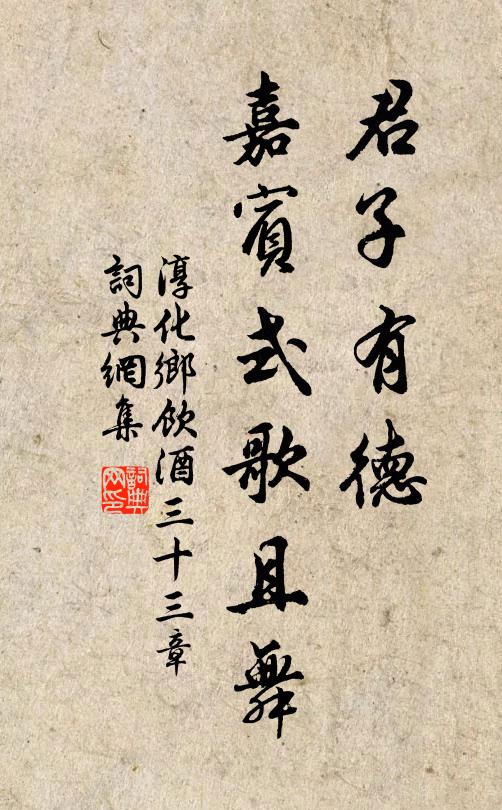 君子有德
嘉賓式歌且舞
淳化鄉飲酒三十三章
詞典網集
詞典網印